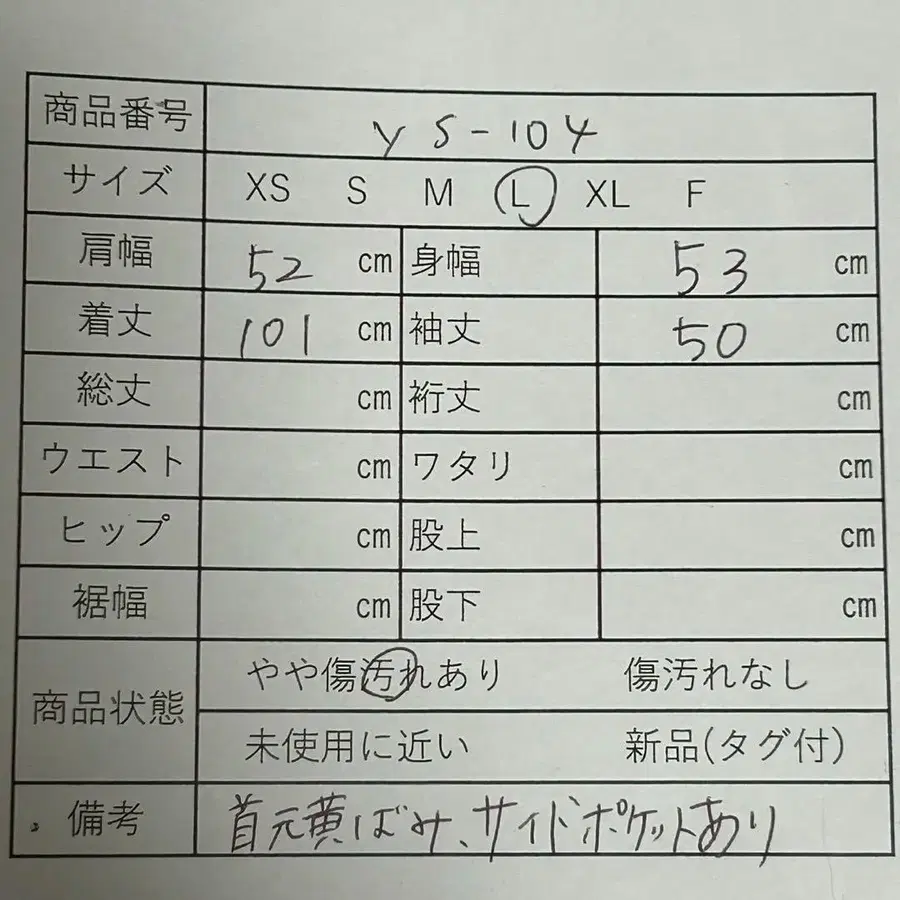 商品番号 YS-104
サイズ XS S M L XL F
肩幅 52 cm 身幅 53 cm
着丈 101 cm 袖丈 50 cm
総丈 cm 裄丈 cm
ウエスト cm ワタリ cm
ヒップ cm 股上 cm
裾幅 cm 股下 cm
商品状態 やや傷汚れあり 傷汚れなし
未使用に近い 新品(タグ付)
備考 首元黄ばみ、サイドポケットあり